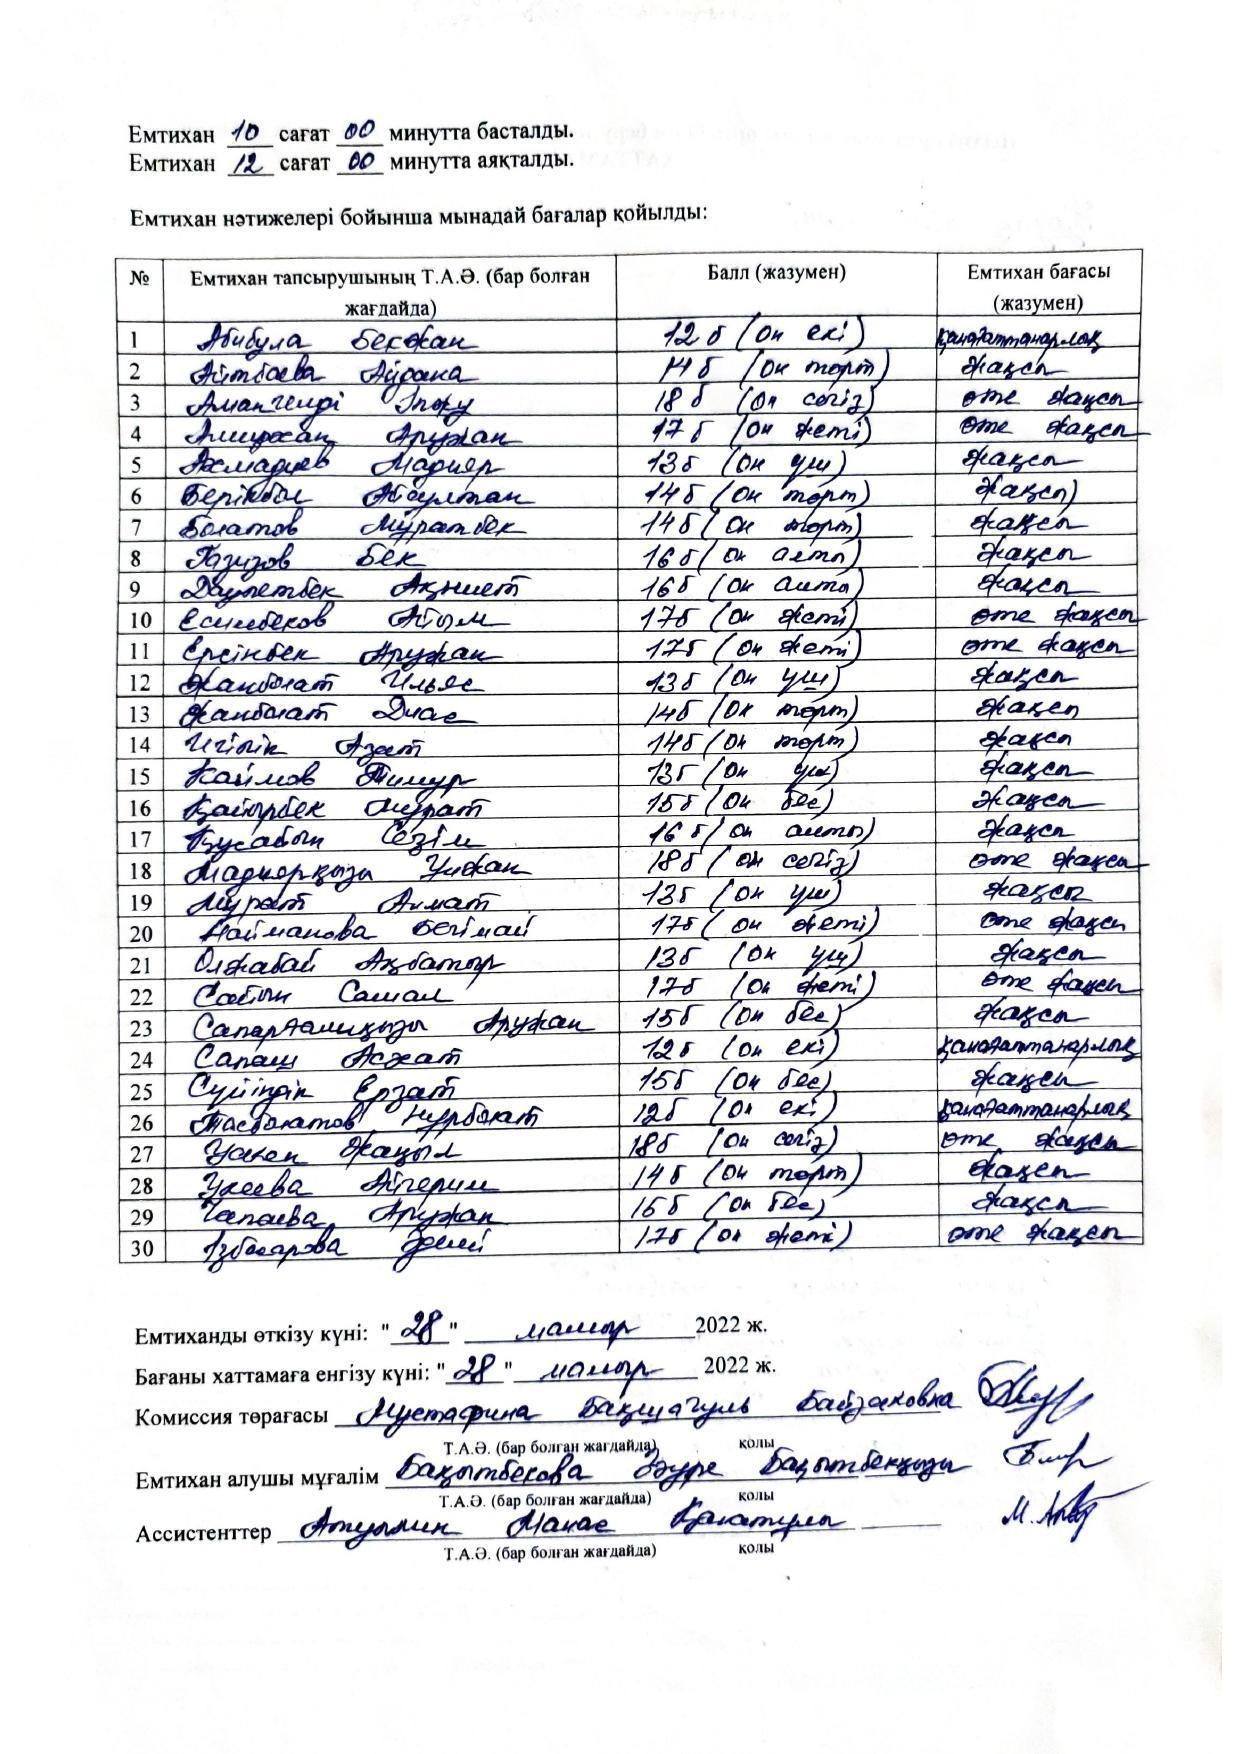 Емтихан 10 сағат 00 минутта басталды.
Емтихан 12 сағат 00 минутта аяқталды.
Емтихан нәтижелері бойынша мынадай бағалар қойылды:
№ Емтихан тапсырушының Т.А.Ә. (бар болған жағдайда) Балл (жазумен) Емтихан бағасы (жазумен)
1 Абибула Бекжан 12 б (он екі) қанағаттанарлық
2 Айтбаева Айдана 14 б (он төрт) жақсы
3 Амангелді 18 б (он сегіз) өте жақсы
4 Амирхан Аружан 17 б (он жеті) өте жақсы
5 Ахмадиев Мадияр 13 б (он үш) жақсы
6 Берікбол Абдулман 14 б (он төрт) жақсы
7 Болатов Мұратбек 14 б (он төрт) жақсы
8 Газизов Бек 16 б (он алты) жақсы
9 Дәулетбек Ақниет 16 б (он алты) жақсы
10 Есимбеков Айым 17 б (он жеті) өте жақсы
11 Ерсінбек Аружан 17 б (он жеті) өте жақсы
12 Жанболат Ильяс 13 б (он үш) жақсы
13 Жанболат Диас 14 б (он төрт) жақсы
14 Игілік Азат 14 б (он төрт) жақсы
15 Каймов Тимур 13 б (он үш) жақсы
16 Қайырбек Мұрат 15 б (он бес) жақсы
17 Құсабын Сезім 16 б (он алты) жақсы
18 Мадиярқызы Улжан 18 б (он сегіз) өте жақсы
19 Мұрат Алмат 13 б (он үш) жақсы
20 Найманова Бегімай 17 б (он жеті) өте жақсы
21 Олжабай Ақбатыр 13 б (он үш) жақсы
22 Сабын Самал 17 б (он жеті) өте жақсы
23 Сапарғалиқызы Аружан 15 б (он бес) жақсы
24 Сапаш Асхат 12 б (он екі) қанағаттанарлық
25 Сүйіндік Ерзат 15 б (он бес) жақсы
26 Тасболатов Нұрболат 12 б (он екі) қанағаттанарлық
27 Уакен Жақыл 18 б (он сегіз) өте жақсы
28 Укеева Айгерим 14 б (он төрт) жақсы
29 Чапаева Аружан 15 б (он бес) жақсы
30 Әдемі 17 б (он жеті) өте жақсы
Емтиханды өткізу күні: "28" мамыр 2022 ж.
Бағаны хаттамаға енгізу күні: "28" мамыр 2022 ж.
Комиссия төрағасы Мустафина Бақшагуль Байзаковна
Т.А.Ә. (бар болған жағдайда) қолы
Емтихан алушы мұғалім Бақытбекова Зәуре Бақытбекқызы
Т.А.Ә. (бар болған жағдайда) қолы
Ассистенттер Манас Қанатұлы
Т.А.Ә. (бар болған жағдайда) қолы